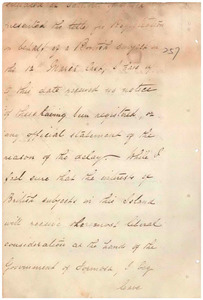 presented the title for Registration
in behalf of a British subject in
257
the "Maria Cruz", I have up
to this date received no notice
of these having been registered, or
any official statement of the
reason of the delay. While I
feel sure that the interests of
British subjects in this Island
will receive liberal
consideration at the hands of the
Government of Formosa, I beg
leave